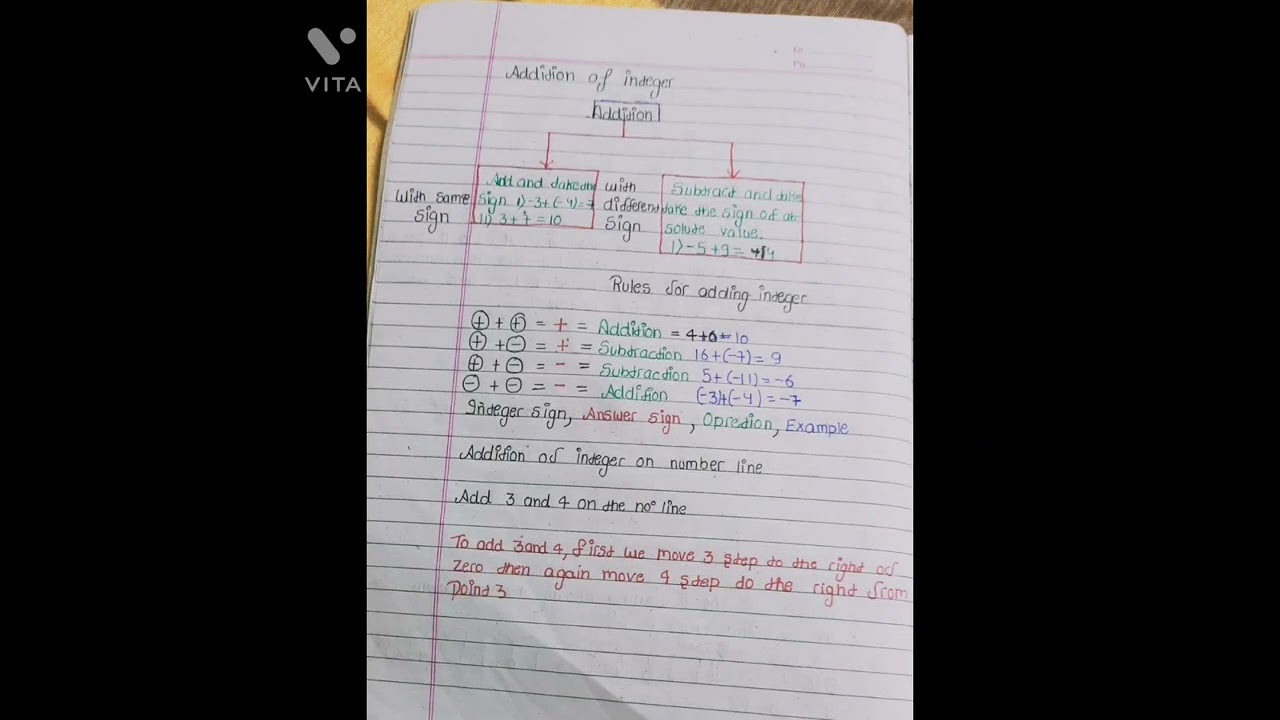 VITA
Addition of integer
Addition
with same
sign
Add and take the
sign 1) -3+(-4)=7
11) 3+7=10
with
different
sign
Subtract and take
take the sign of ab
solute value.
1) -5+9= +14
Rules for adding integer
⊕ + ⊕ = + = Addition = 4+6=10
⊕ + ⊖ = + = Subtraction 16+(-7)= 9
⊕ + ⊖ = - = Subtraction 5+(-11)=-6
⊖ + ⊖ = - = Addition (-3)+(-4)=-7
Integer sign, Answer sign, Opretion, Example
Addition of integer on number line
Add 3 and 4 on the no° line
To add 3 and 4, first we move 3 step to the right of
zero then again move 4 step to the right from
point 3